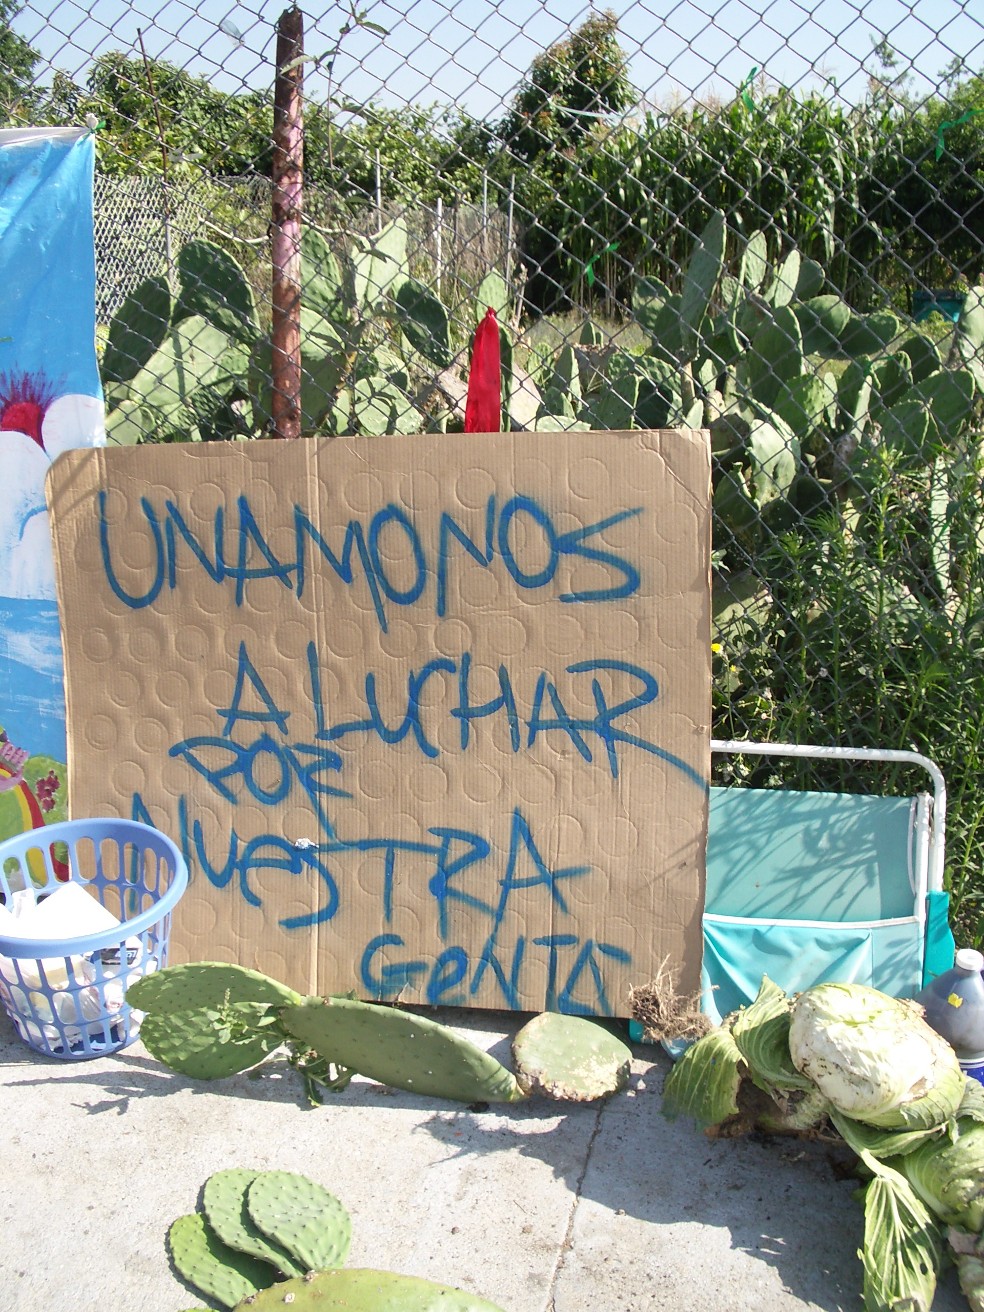 UNAMONOS
A LUCHAR
POR
NUESTRA
GENTE